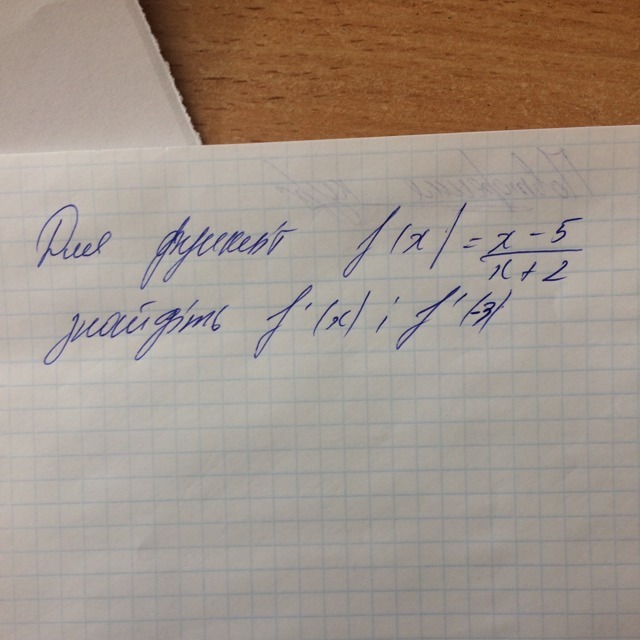 Для функції f(x) = x - 5 / x + 2
знайдіть f'(x) і f'(-3)